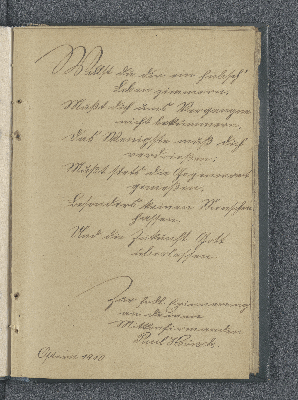 Willst du dir ein hübsch'
Leben zimmern,
Mußt dich ums Vergangne
nicht bekümmern,
Das Wenigste muß dich
verdrießen;
Mußt stets die Gegenwart
genießen,
Besonders keinen Menschen
hassen
Und die Zukunft Gott
überlassen.
Zur frdl. Erinnerung
an deinen
Mitkonfirmanden
Paul
Ostern 1910